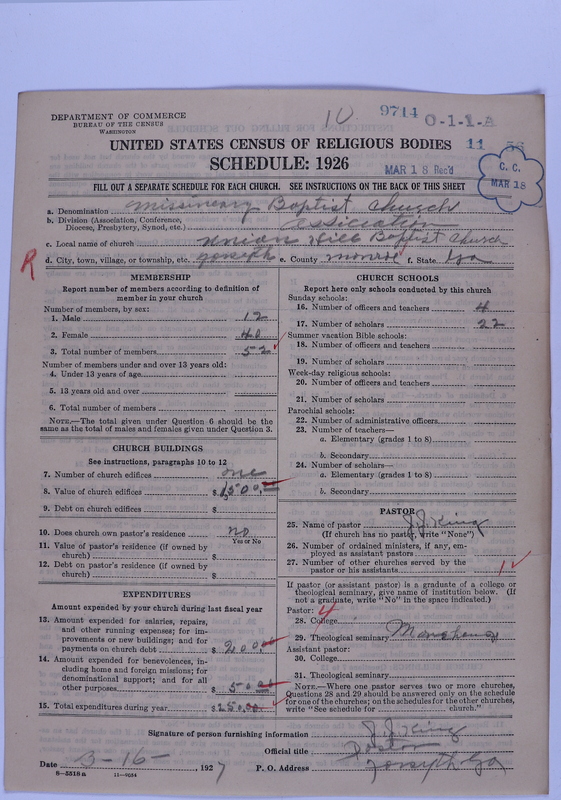 DEPARTMENT OF COMMERCE
BUREAU OF THE CENSUS
WASHINGTON
10 9714 O-1-1-A
UNITED STATES CENSUS OF RELIGIOUS BODIES 11 56
SCHEDULE: 1926
MAR 18 Rec'd
C. C.
MAR 18
FILL OUT A SEPARATE SCHEDULE FOR EACH CHURCH. SEE INSTRUCTIONS ON THE BACK OF THIS SHEET
a. Denomination Missineary Baptist Church
b. Division (Association, Conference, Diocese, Presbytery, Synod, etc.) Assiciation
c. Local name of church Union Hill Baptist Church
R
d. City, town, village, or township, etc. e. County Monroe f. State Ga
MEMBERSHIP
Report number of members according to definition of member in your church
Number of members, by sex:
1. Male 12
2. Female 40
3. Total number of members 52
Number of members under and over 13 years old:
4. Under 13 years of age
5. 13 years old and over
6. Total number of members
NOTE.—The total given under Question 6 should be the same as the total of males and females given under Question 3.
CHURCH BUILDINGS
See instructions, paragraphs 10 to 12
7. Number of church edifices one
8. Value of church edifices $ 1500.
9. Debt on church edifices $
10. Does church own pastor's residence? no
Yes or No
11. Value of pastor's residence (if owned by church) $
12. Debt on pastor's residence (if owned by church) $
EXPENDITURES
Amount expended by your church during last fiscal year
13. Amount expended for salaries, repairs, and other running expenses; for improvements or new buildings; and for payments on church debt $ 200.00
14. Amount expended for benevolences, including home and foreign missions; for denominational support; and for all other purposes $ 50.00
15. Total expenditures during year $ 250.00
CHURCH SCHOOLS
Report here only schools conducted by this church
Sunday schools:
16. Number of officers and teachers 4
17. Number of scholars 22
Summer vacation Bible schools:
18. Number of officers and teachers
19. Number of scholars
Week-day religious schools:
20. Number of officers and teachers
21. Number of scholars
Parochial schools:
22. Number of administrative officers
23. Number of teachers—
a. Elementary (grades 1 to 8)
b. Secondary
24. Number of scholars—
a. Elementary (grades 1 to 8)
b. Secondary
PASTOR
25. Name of pastor J. J. King
(If church has no pastor, write "None")
26. Number of ordained ministers, if any, employed as assistant pastors
27. Number of other churches served by the pastor or his assistants 1
If pastor (or assistant pastor) is a graduate of a college or theological seminary, give name of institution below. (If not a graduate, write "No" in the space indicated.)
Pastor: 4
28. College
29. Theological seminary
Assistant pastor:
30. College
31. Theological seminary
NOTE.—Where one pastor serves two or more churches, Questions 28 and 29 should be answered only on the schedule for one of the churches; on the schedules for the other churches, write "See schedule for church."
Signature of person furnishing information J. J. King
Official title Pastor
Date 3-16-, 1927 P. O. Address Forsyth Ga
8—5518a 11—9034